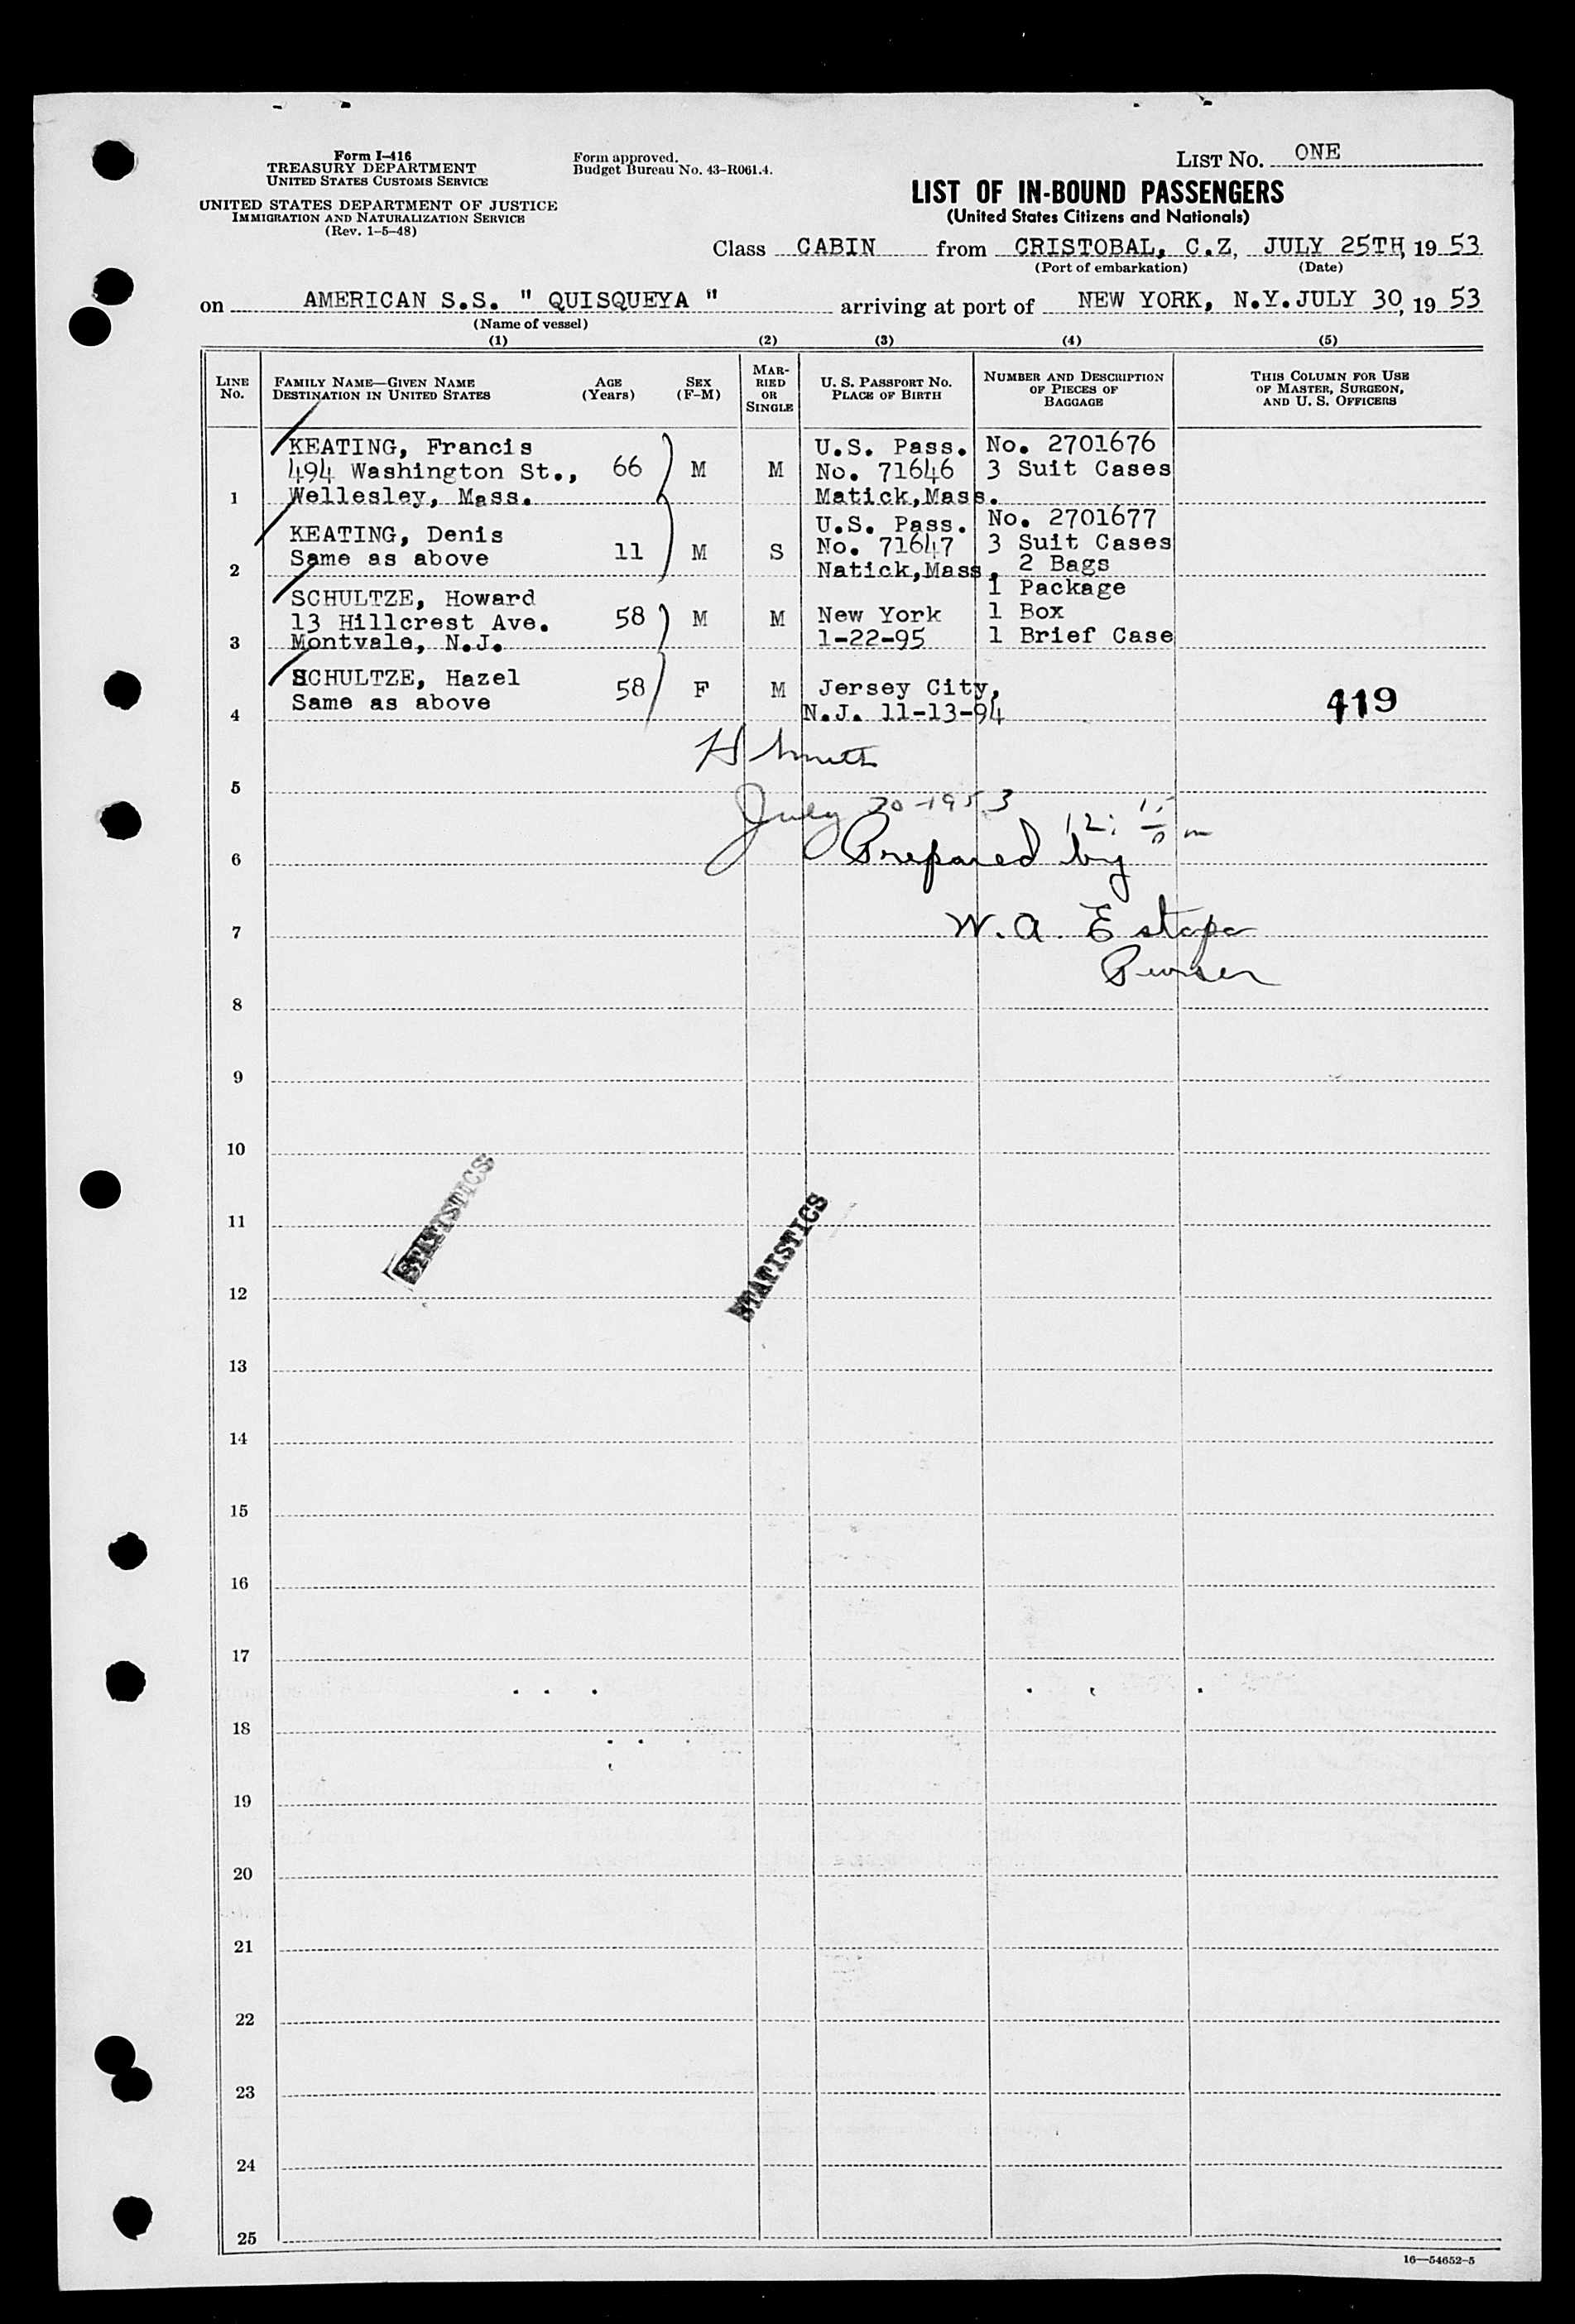 Form I-416
TREASURY DEPARTMENT
UNITED STATES CUSTOMS SERVICE
UNITED STATES DEPARTMENT OF JUSTICE
IMMIGRATION AND NATURALIZATION SERVICE
(Rev. 1-5-48)
Form approved.
Budget Bureau No. 43-R061.4.
LIST NO. ONE
LIST OF IN-BOUND PASSENGERS
(United States Citizens and Nationals)
Class CABIN from CRISTOBAL, C.Z, JULY 25TH, 1953
(Port of embarkation) (Date)
on AMERICAN S.S. " QUISQUEYA " arriving at port of NEW YORK, N.Y. JULY 30, 1953
(Name of vessel)
(1) (2) (3) (4) (5)
LINE No. FAMILY NAME—GIVEN NAME DESTINATION IN UNITED STATES AGE (Years) SEX (F-M) MARRIED OR SINGLE U. S. PASSPORT NO. PLACE OF BIRTH NUMBER AND DESCRIPTION OF PIECES OF BAGGAGE THIS COLUMN FOR USE OF MASTER, SURGEON, AND U. S. OFFICERS
KEATING, Francis U.S. Pass. No. 2701676
494 Washington St., 66 M M No. 71646 3 Suit Cases
1 Wellesley, Mass. Matick,Mass.
KEATING, Denis U.S. Pass. No. 2701677
Same as above 11 M S No. 71647 3 Suit Cases
2 Natick,Mass. 2 Bags
SCHULTZE, Howard 1 Package
13 Hillcrest Ave. 58 M M New York 1 Box
3 Montvale, N.J. 1-22-95 1 Brief Case
SCHULTZE, Hazel 58 F M Jersey City,
Same as above N.J. 11-13-94 419
4
H Smith
5
July 30-1953 12:15
6 Prepared by
7 W. A. Estopa
Purser
8
9
10
11
STATISTICS STATISTICS
12
13
14
15
16
17
18
19
20
21
22
23
24
25
16—54652-5